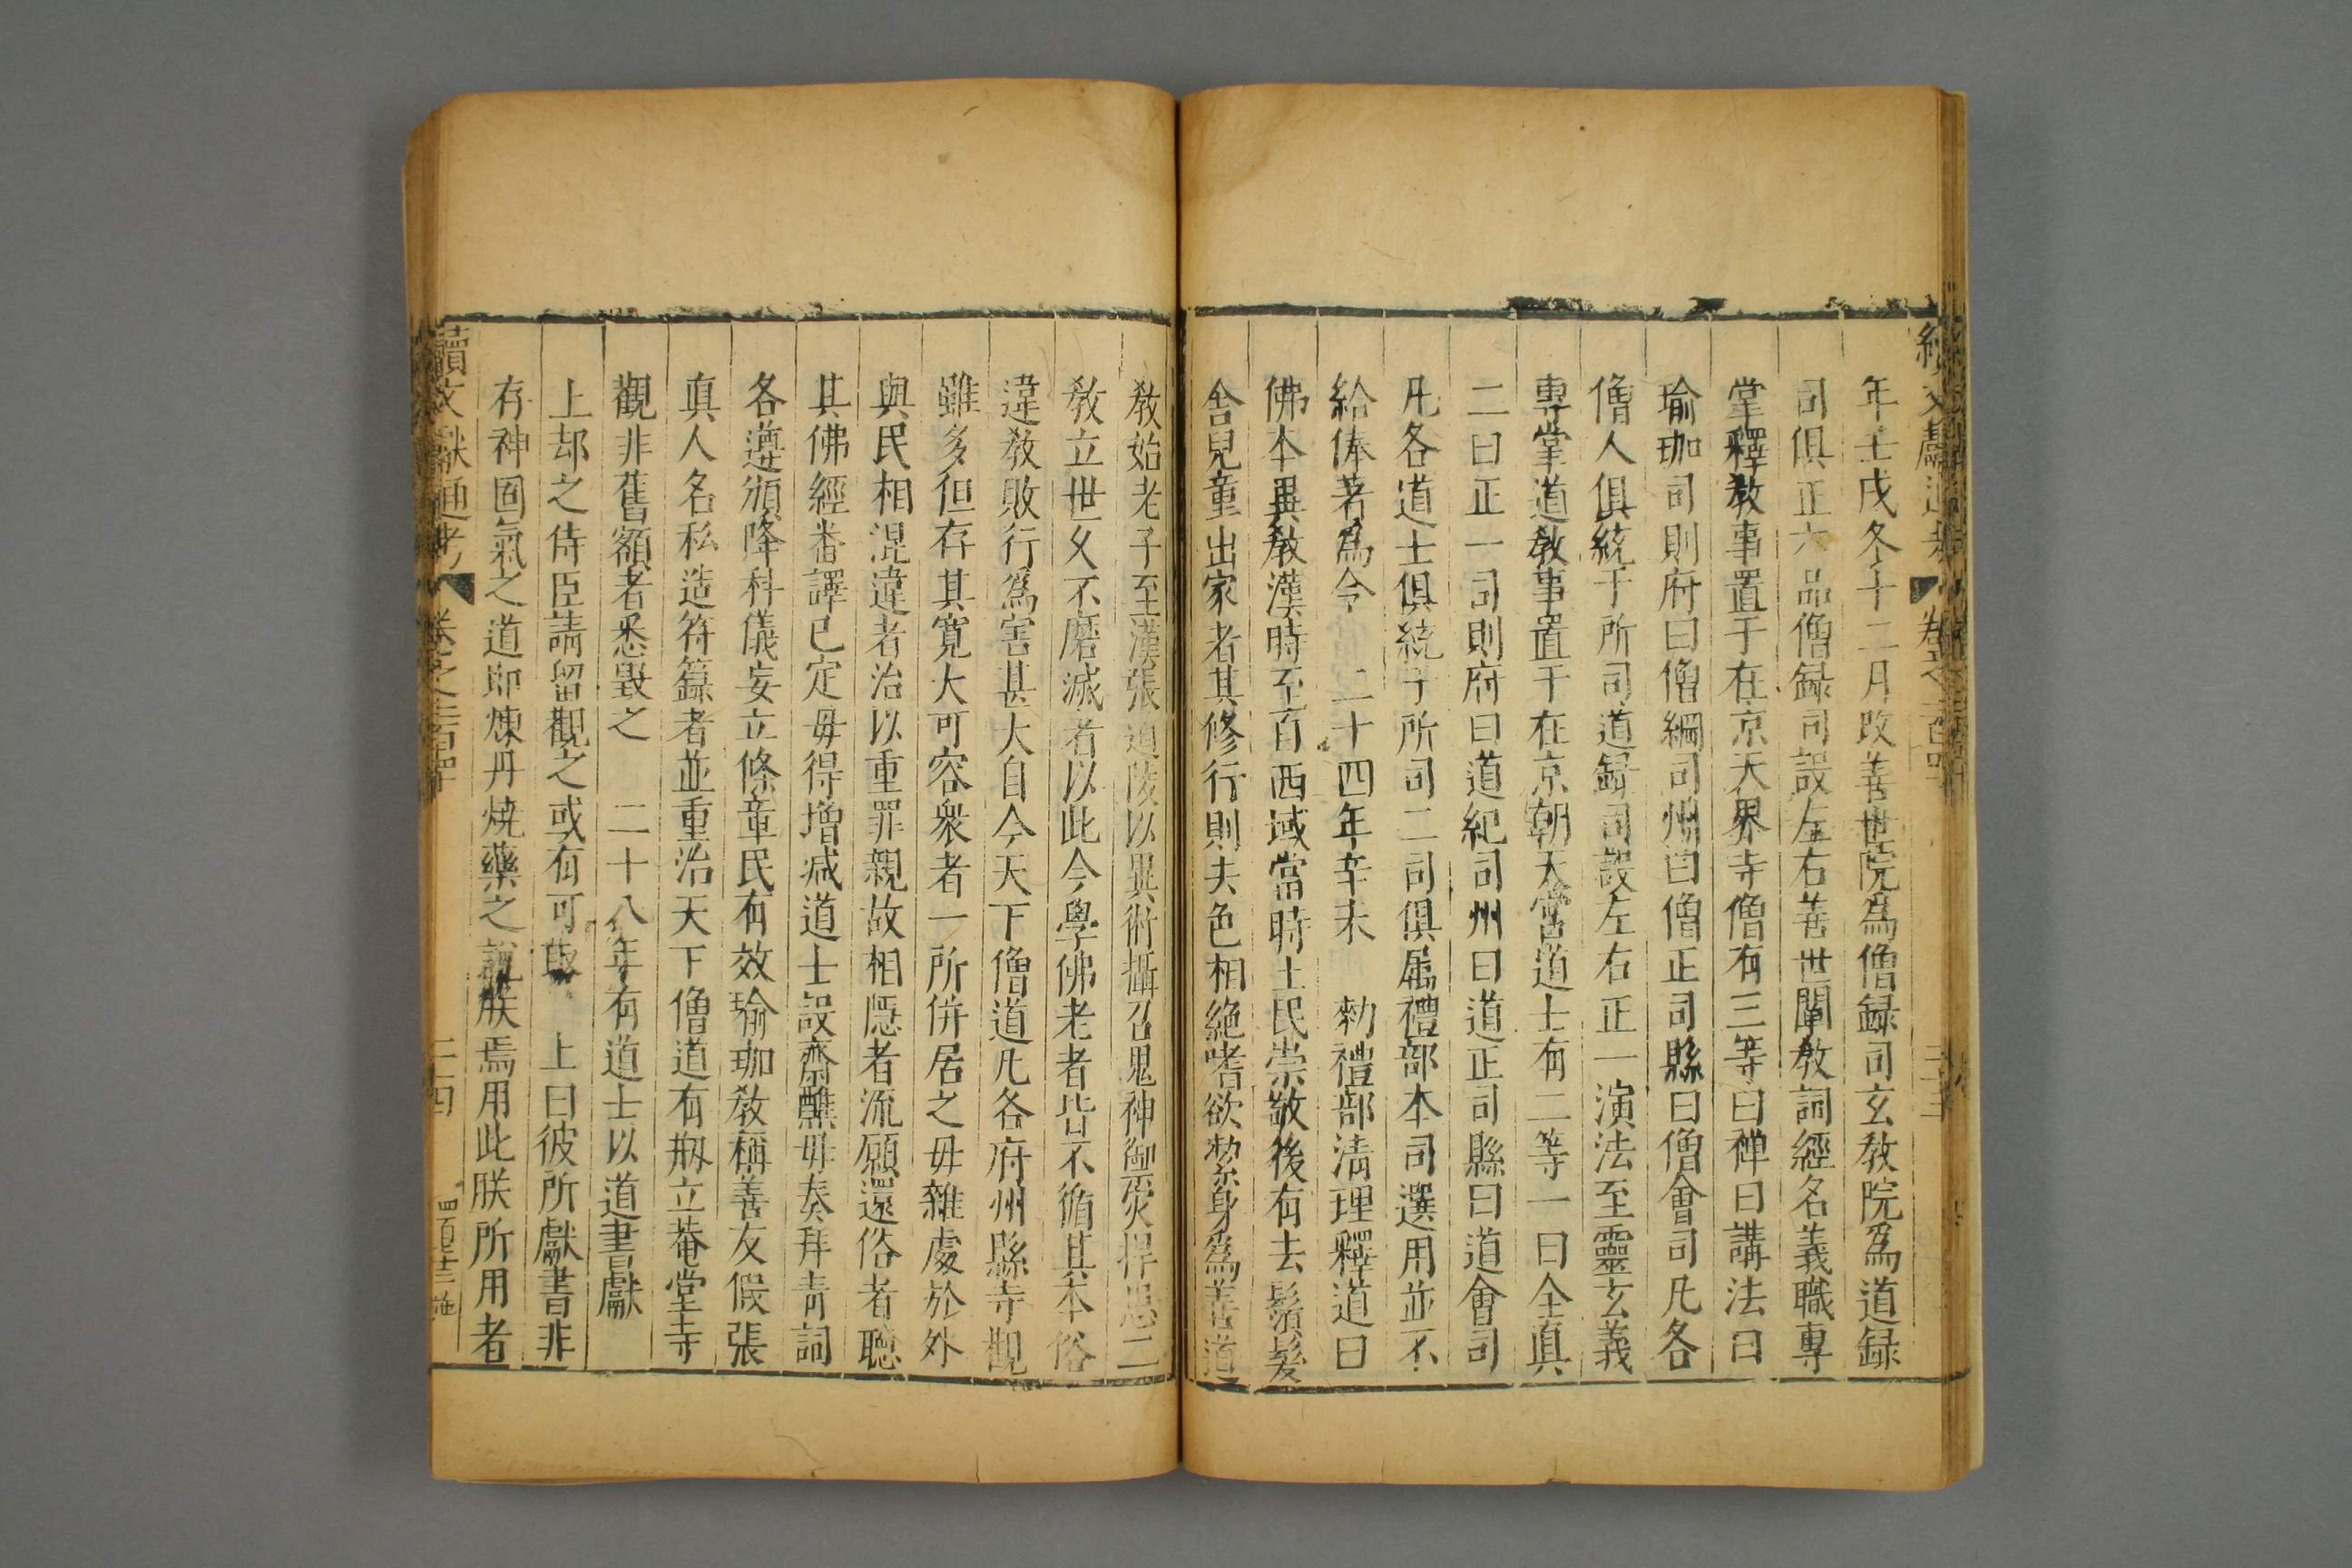 年壬戌冬十二月改善世院爲僧録司玄教院爲道録
司俱正六品僧録司設左右善世闡教詞經名義職專
掌釋教事置于在京天界寺僧有三等曰禪曰講法曰
瑜珈司則府曰僧綱司州曰僧正司縣曰僧會司凡各
僧人俱統于所司道録司設左右正一演法至靈玄義
專掌道教事置于在京朝天宮道士有二等一曰全真
二曰正一司則府曰道紀司州曰道正司縣曰道會司
凡各道士俱統于所司二司俱屬禮部本司選用並不
給俸著爲令 二十四年辛未 勑禮部清理釋道曰
佛本異教漢時至自西域當時士民崇敬後有去鬚髮
舍兒童出家者其修行則去色相絶嗜欲㓗身爲善道
教始老子至漢張道陵以異術攝召鬼神御灾捍患二
教立世久不磨滅者以此今學佛老者皆不循其本俗
違教敗行爲害甚大自今天下僧道凡各府州縣寺觀
雖多但存其寬大可容衆者一所併居之毋雜處於外
與民相混違者治以重罪親故相隱者流願還俗者聽
其佛經番譯已定毋得增减道士設齋醮毋奏拜青詞
各遵頒降科儀妄立條章民有效瑜珈教稱善友假張
真人名私造符籙者並重治天下僧道有剏立菴堂寺
觀非舊額者悉毀之 二十八年有道士以道書獻
上却之侍臣請留觀之或有可取 上曰彼所獻書非
存神固氣之道即煉丹燒藥之說朕焉用此朕所用者
續文獻通考 卷之二百四十 二四